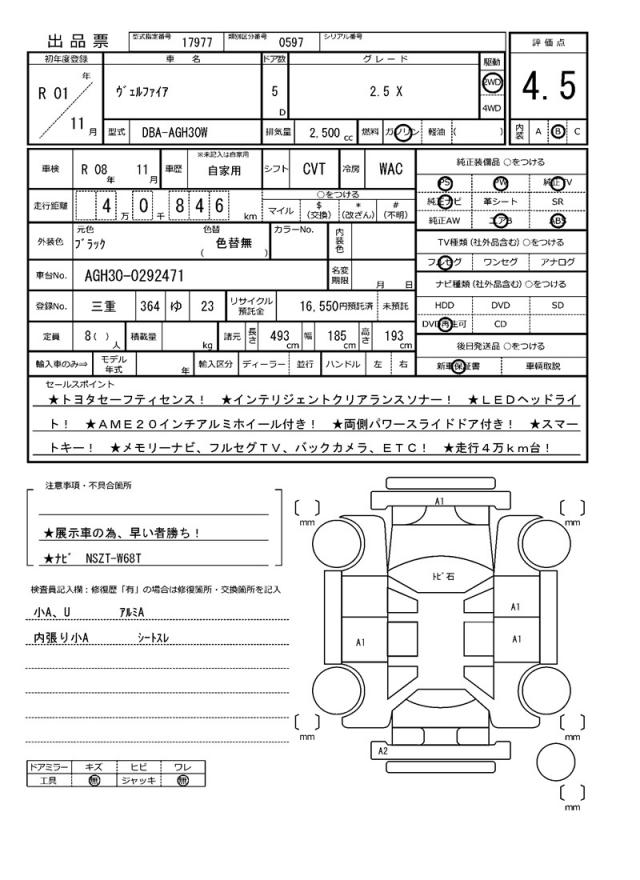 出品票 型式指定番号 17977 類別区分番号 0597 シリアル番号
初年度登録 車名 ドア数 グレード 駆動 評価点
R 01 年 11 月 ヴェルファイア 5 D 2.5 X 2WD 4WD 4.5
型式 DBA-AGH30W 排気量 2,500 cc 燃料 ガソリン 軽油 ( ) 内装 A B C
車検 R 08 年 11 月 車歴 ※未記入は自家用 自家用 シフト CVT 冷房 WAC
走行距離 4 万 0 千 8 4 6 km ○をつける マイル $ (交換) * (改ざん) # (不明)
外装色 元色 ブラック 色替 ( 色替無 ) カラーNo. 内装色
車台No. AGH30-0292471 名変期限 月 日
登録No. 三重 364 ゆ 23 リサイクル預託金 16,550円預託済 未預託
定員 8( ) 人 積載量 kg 諸元 長さ 493 cm 幅 185 cm 高さ 193 cm
輸入車のみ⇒ モデル年式 年 輸入区分 ディーラー 並行 ハンドル 左 右
純正装備品 ○をつける
PS PW 純正TV
純正ナビ 革シート SR
純正AW エアB ABS
TV種類(社外品含む) ○をつける
フルセグ ワンセグ アナログ
ナビ種類(社外品含む) ○をつける
HDD DVD SD
DVD再生可 CD
後日発送品 ○をつける
新車保証書 車輌取説
セールスポイント
★トヨタセーフティセンス! ★インテリジェントクリアランスソナー! ★LEDヘッドライ
ト! ★AME20インチアルミホイール付き! ★両側パワースライドドア付き! ★スマー
トキー! ★メモリーナビ、フルセグTV、バックカメラ、ETC! ★走行4万km台!
注意事項・不具合箇所
★展示車の為、早い者勝ち!
★ナビ NSZT-W68T
検査員記入欄:修復歴「有」の場合は修復箇所・交換箇所を記入
小A、U アルミA
内張り小A シートスレ
ドアミラー キズ ヒビ ワレ
工具 無 ジャッキ 無
A1
mm mm
トビ石
A1
A1 A1
mm mm
A2
mm